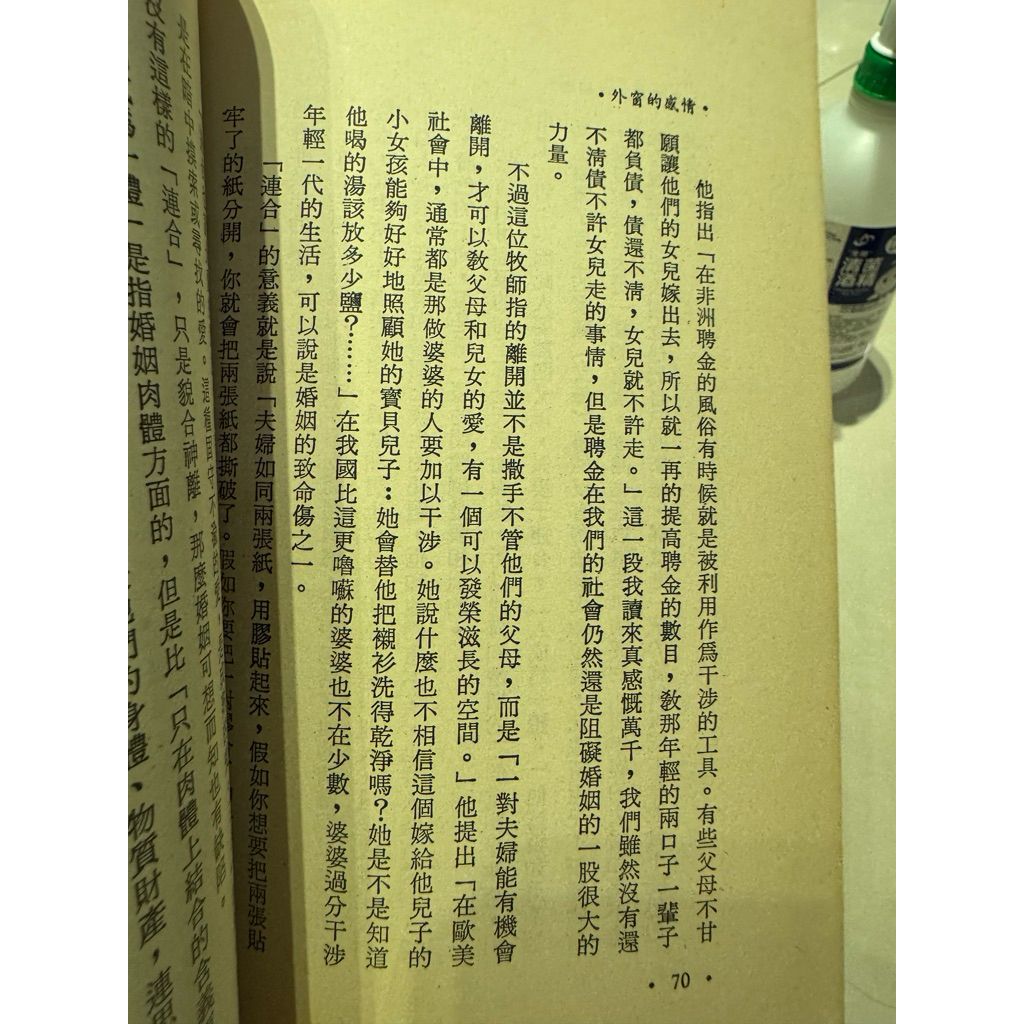 •外窗的感情•
他指出「在非洲聘金的風俗有時候就是被利用作爲干涉的工具。有些父母不甘
願讓他們的女兒嫁出去，所以就一再的提高聘金的數目，敎那年輕的兩口子一輩子
都負債，債還不淸，女兒就不許走。」這一段我讀來真感慨萬千，我們雖然沒有還
不淸債不許女兒走的事情，但是聘金在我們的社會仍然還是阻礙婚姻的一股很大的
力量。
不過這位牧師指的離開並不是撒手不管他們的父母，而是「一對夫婦能有機會
離開，才可以敎父母和兒女的愛，有一個可以發榮滋長的空間。」他提出「在歐美
社會中，通常都是那做婆婆的人要加以干涉。她說什麼也不相信這個嫁給他兒子的
小女孩能夠好好地照顧她的寶貝兒子：她會替他把襯衫洗得乾淨嗎？她是不是知道
他喝的湯該放多少鹽？……」在我國比這更嚕囌的婆婆也不在少數，婆婆過分干涉
年輕一代的生活，可以說是婚姻的致命傷之一。
「連合」的意義就是說「夫婦如同兩張紙，用膠貼起來，假如你想要把兩張貼
牢了的紙分開，你就會把兩張紙都撕破了。假如你要把一對
•70•
是在暗中摸索或尋找的愛。這種
沒有這樣的「連合」，只是貌合神離，那麼婚姻可想而知也有缺陷。
一體」是指婚姻肉體方面的，但是比「只在肉體上結合的含義
們的身體、物質財產，連思